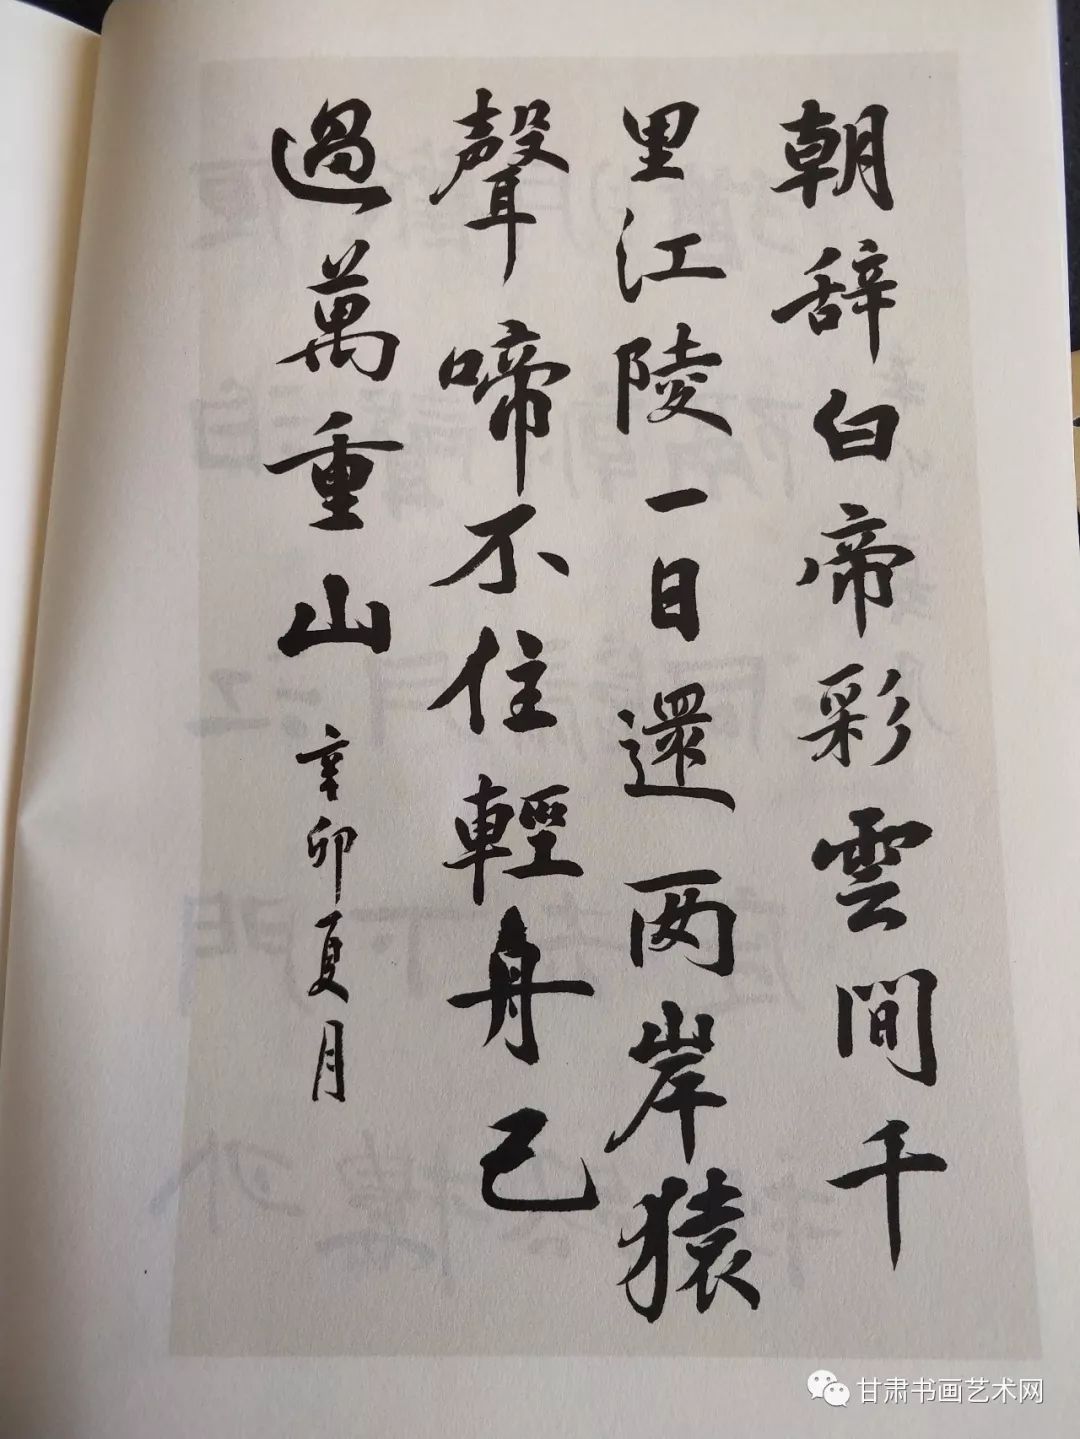 朝辞白帝彩雲間千
里江陵一日還两岸猿
聲啼不住輕舟已
過萬重山
辛卯夏月
甘肃书画艺术网